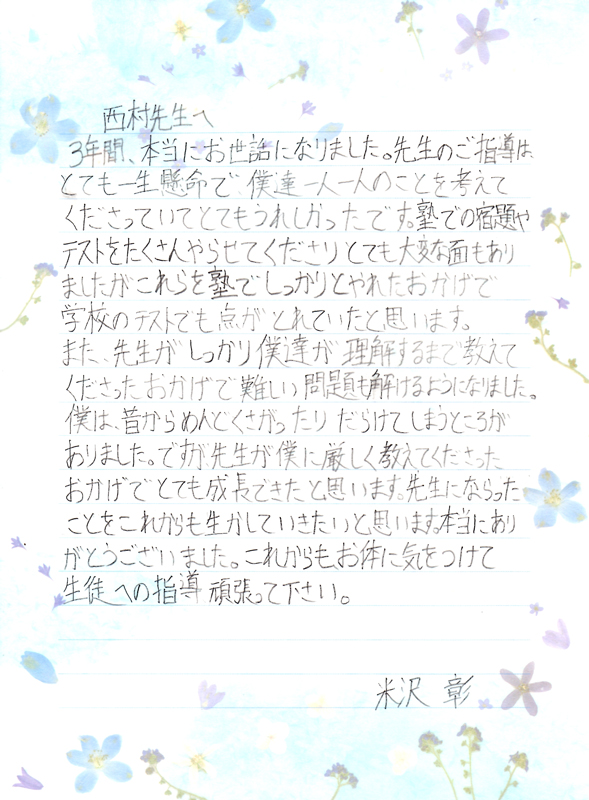 西村先生へ
3年間、本当にお世話になりました。先生のご指導は
とても一生懸命で僕達一人一人のことを考えて
くださっていてとてもうれしかったです。塾での宿題や
テストをたくさんやらせてくださりとても大変な面もあり
ましたがこれらを塾でしっかりとやれたおかげで
学校のテストでも点がとれていたと思います。
また、先生がしっかり僕達が理解するまで教えて
くださったおかげで難しい問題も解けるようになりました。
僕は、昔からめんどくさがったりだらけてしまうところが
ありました。ですが、先生が僕に厳しく教えてくださった
おかげでとても成長できたと思います。先生にならった
ことをこれからも生かしていきたいと思います。本当にあり
がとうございました。これからも、お体に気をつけて
生徒への指導頑張って下さい。
米沢 彰